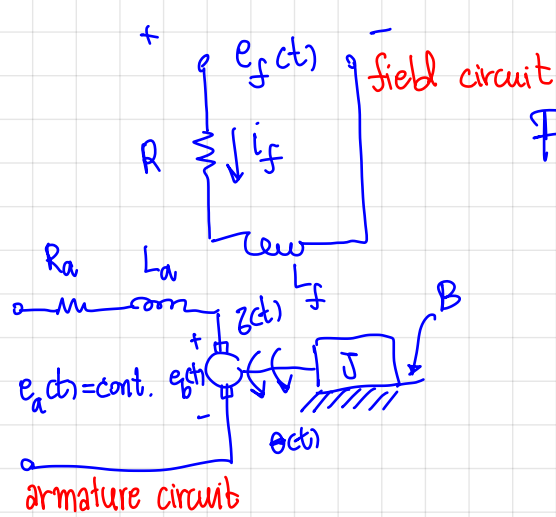 + e_f(t) −
field circuit
R i_f
L_f
R_a L_a
B
+ J
e_a(t)=cont. e_b(t)
−
θ(t)
armature circuit